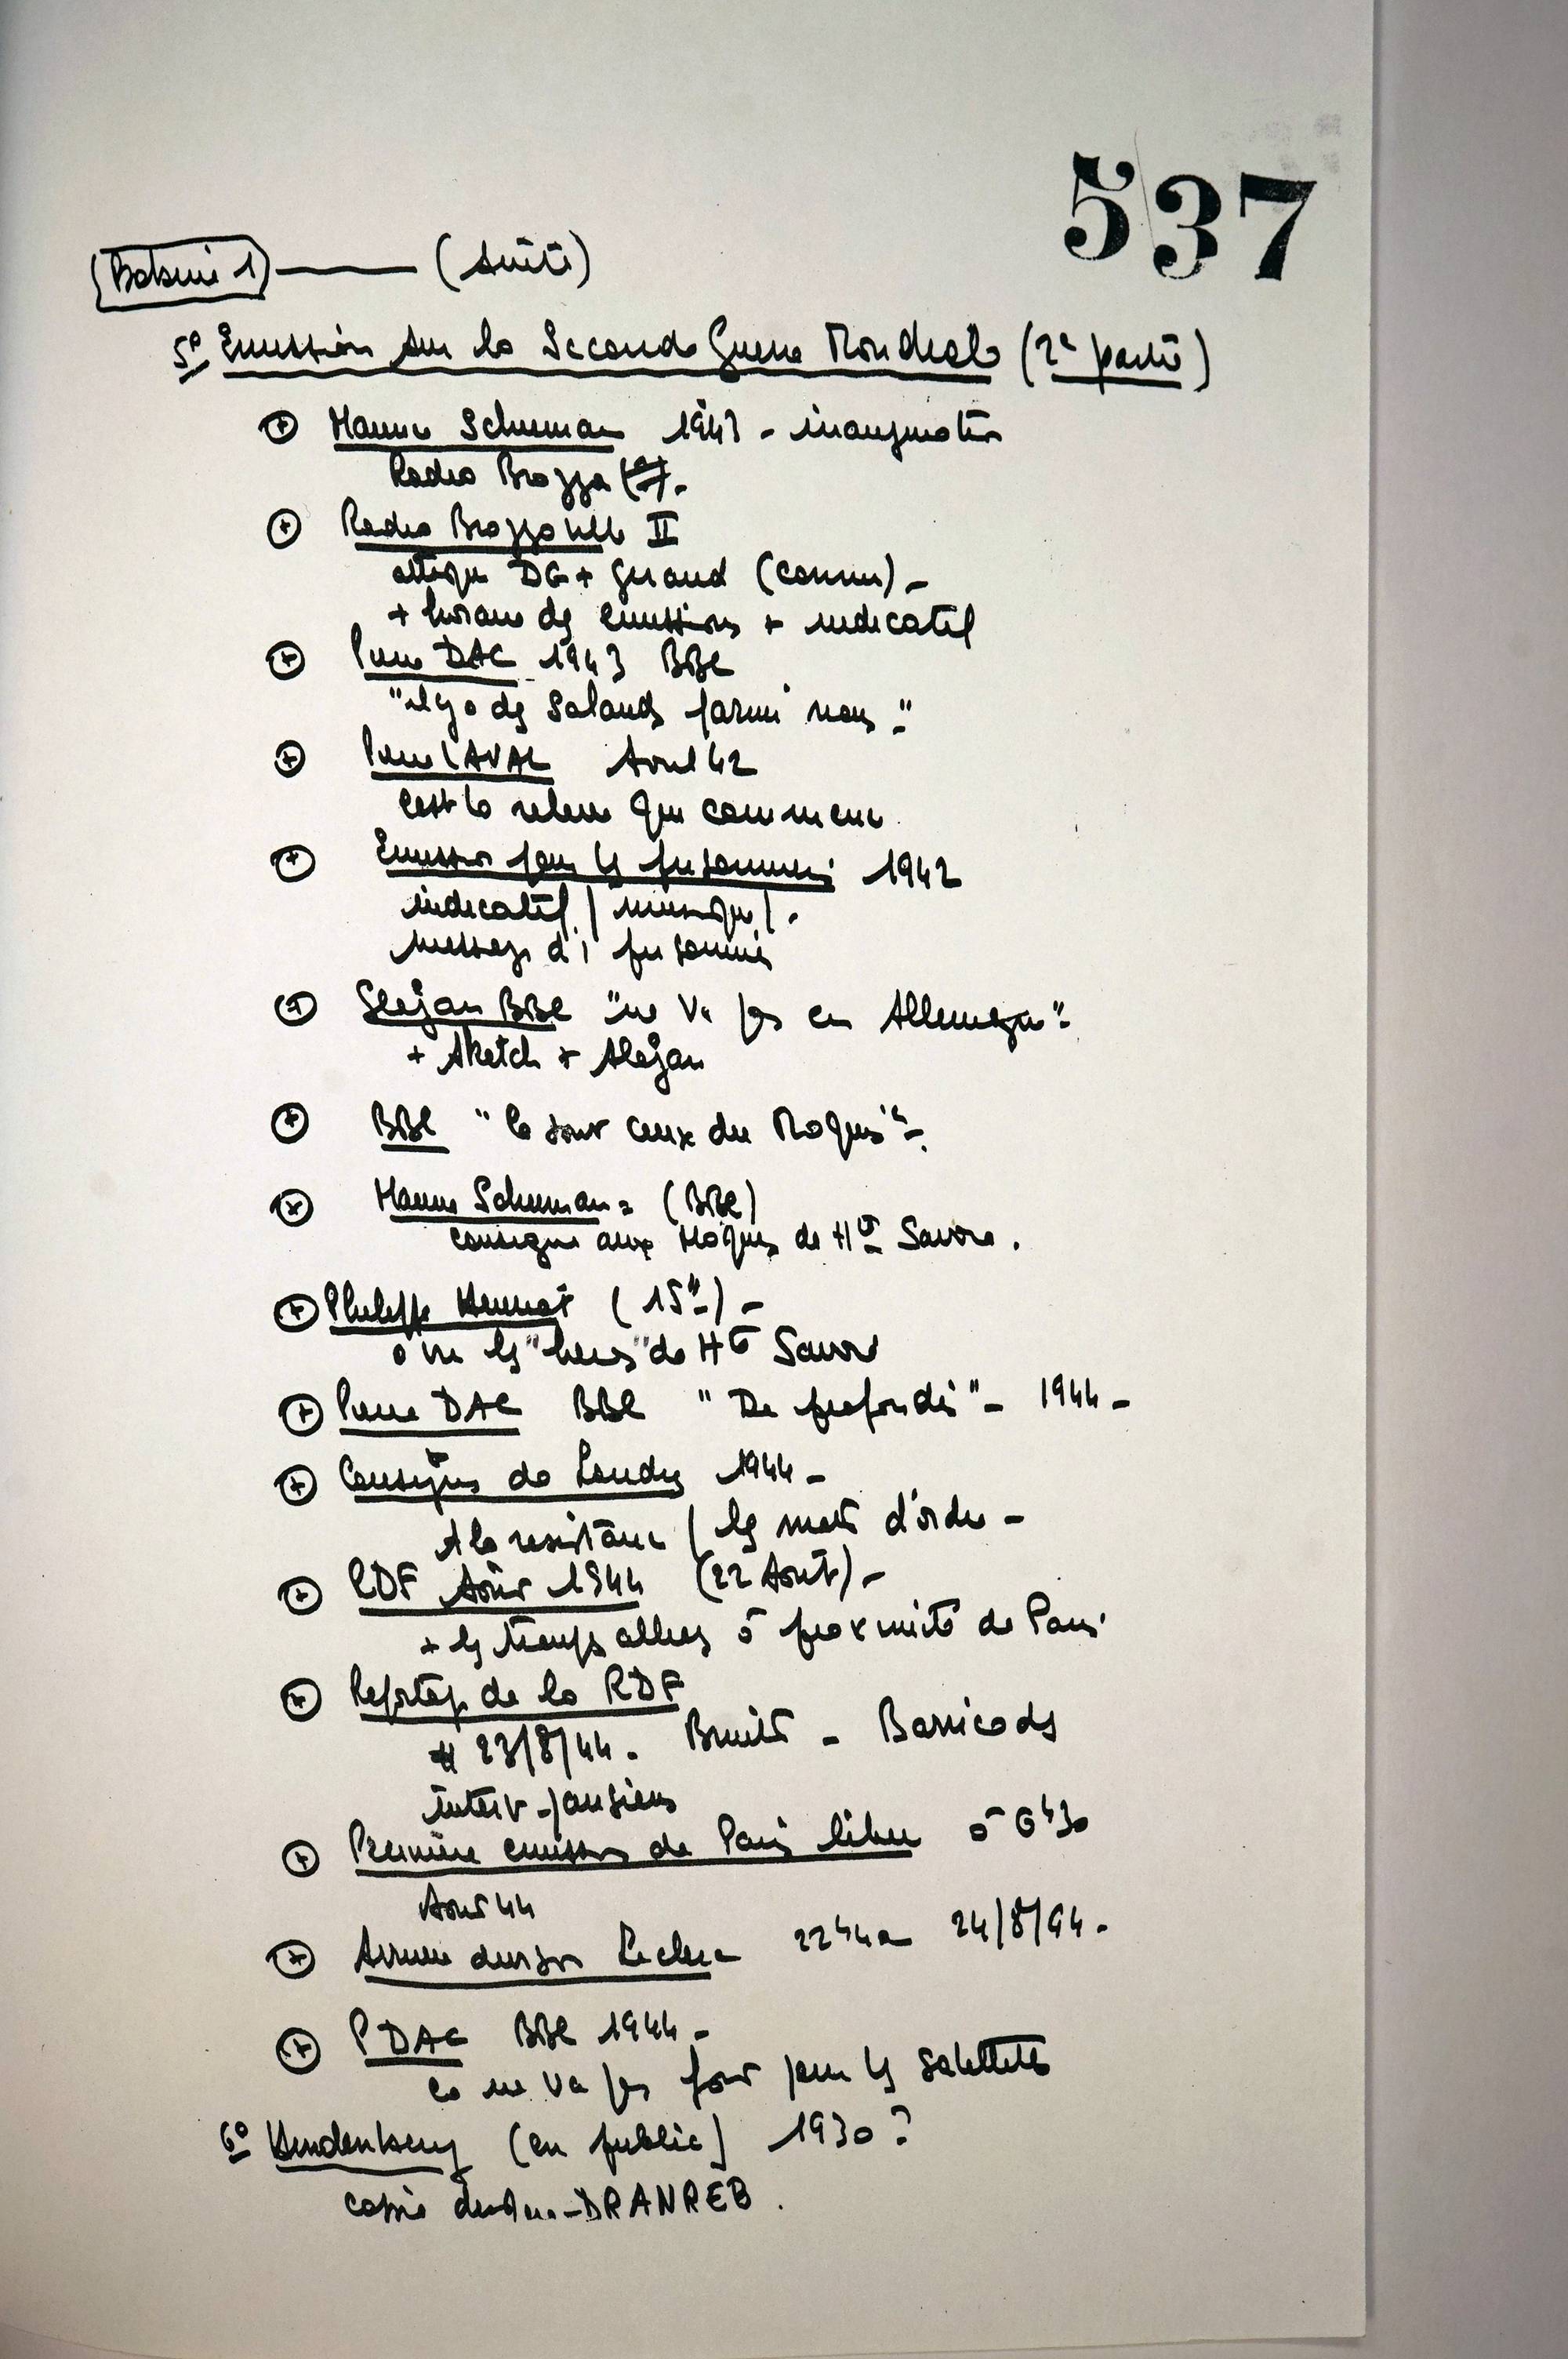 537
(Bobine 1) — (suite)
5° Emission sur la Seconde Guerre Mondiale (2e partie)
⊕ Maurice Schuman 1943 - inauguration
Radio Brazza
⊕ Radio Brazzaville II
attaque DG + Giraud (connu) -
+ horaire des emissions + indicatif
⊕ Pierre DAC 1943 BBC
"il y a des salauds parmi nous".
⊕ Pierre LAVAL Avril 42
C'est la releve qui commence.
⊕ Emission pour les prisonniers 1942
indicatif / musique / .
message d'1 prisonnier
⊕ Slogan BBC "ne va pas en Allemagne".
+ sketch + slogan
⊕ BBC " ce sont ceux du Maquis" -.
⊕ Maurice Schuman = (BBC)
consigne aux Maquis de Hte Savoie.
⊕ Philippe Henriot (15") -
a vu les "heros" de Hte Savoie
⊕ Pierre DAC BBC "De profondis" - 1944 -
⊕ Consignes de Londres 1944 -
A la resistance / les mots d'ordre -
⊕ RDF Août 1944 (22 Août) -
+ les troupes alliées à proximité de Paris
⊕ Reportage de la RDF
23/8/44. Bruits - Barricades
interv - parisiens
⊕ Première emission de Paris libre à 6h30
Aout 44
⊕ Arrivée division Leclerc 22h40 24/8/44.
⊕ P DAC BBC 1944 -
Ca ne va pas fort pour les satellites
6° Hindenburg (en public) 1930 ?
copie DRANREB.